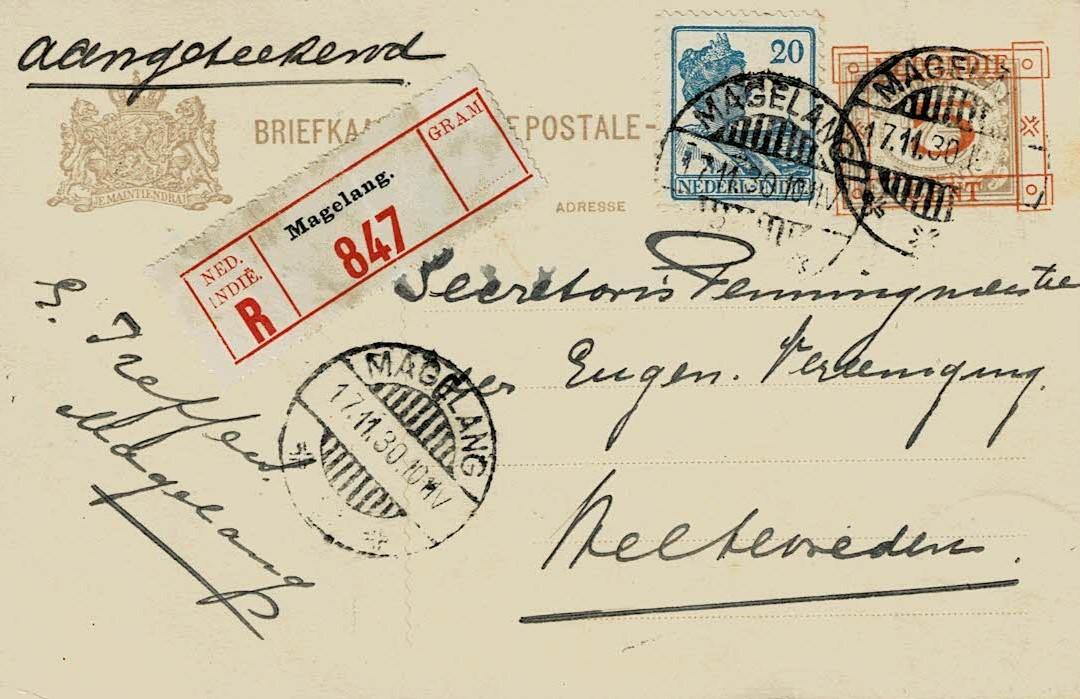 Aangeteekend
JE MAINTIENDRAI
BRIEFKA
POSTALE-
ADRESSE
NED.
INDIË.
R
Magelang.
847
GRAM
20
NEDERL INDIË
MAGELANG
17.11.30.10HV
MAGELANG
17.11.30.10
CENT
Secretaris Penningmeester
der Eugen. Vereeniging.
Weltevreden.
MAGELANG
17.11.30.10HV
Magelang